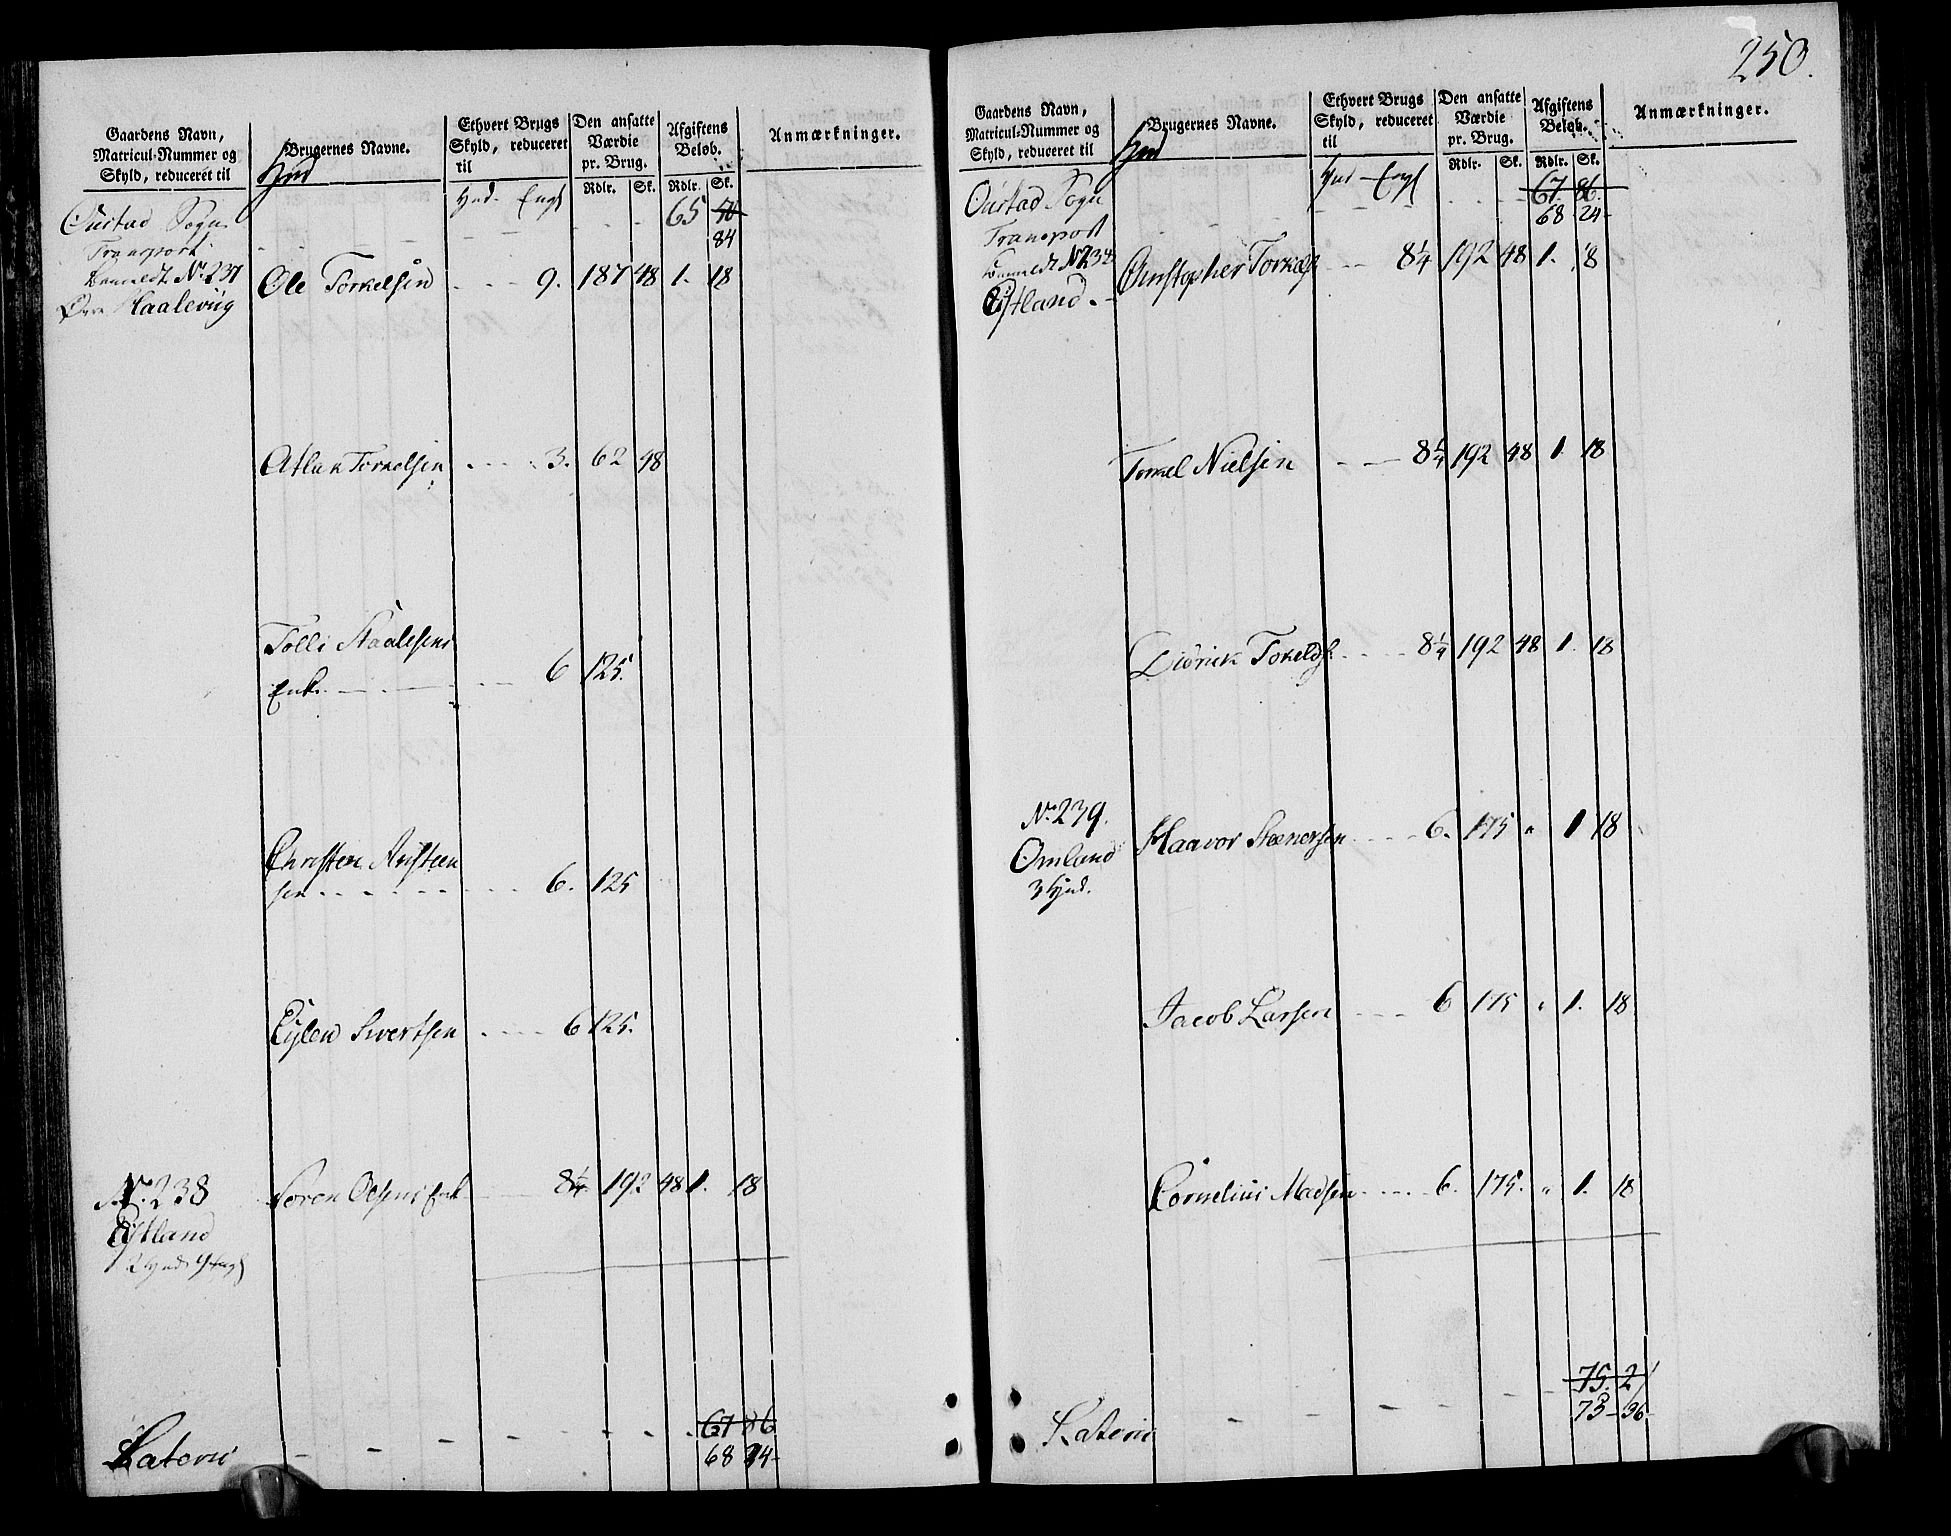 250.
Gaardens Navn, Matricul-Nummer og Skyld, reduceret til
Brugernes Navne.
Ethvert Brugs Skyld, reduceret til
Den ansatte Værdie pr. Brug.
Afgiftens Beløb.
Anmærkninger.
Hud. Eng.
Rdlr. Sk. Rdlr. Sk.
Sogn 65
Transport 84
No. 237 Ole Torkelsen 9. 187 48 1. 18
Øvre Haalevüg
Atlak Torkelsen 3. 62 48
Tolli Staalesens
Enke 6 125.
Christen Austeen
sen 6. 125
Eylew Sivertsen 6 125.
No. 238 Søren Enk 8¼ 192 48 1. 18
Eftland
67 86
Lateris 68 24
Gaardens Navn, Matricul-Nummer og Skyld, reduceret til
Brugernes Navne.
Ethvert Brugs Skyld, reduceret til
Den ansatte Værdie pr. Brug.
Afgiftens Beløb.
Anmærkninger.
Hud Eng
Rdlr. Sk. Rdlr. Sk.
Sogn 67. 86.
Transport 68 24
No. 238 Christopher Torkels 8¼ 192 48 1. 18
Eftland.
Torkel Nielsen 8¼ 192 48 1. 18
Didrick 8¼ 192 48 1. 18
No. 239. Haavor Steenersen 6. 175 " 1 18
Omland
3 Hud.
Jacob Larsen 6 175 " 1. 18
Cornelius Madsen 6. 175. " 1. 18
75. 2
Lateris 73 36